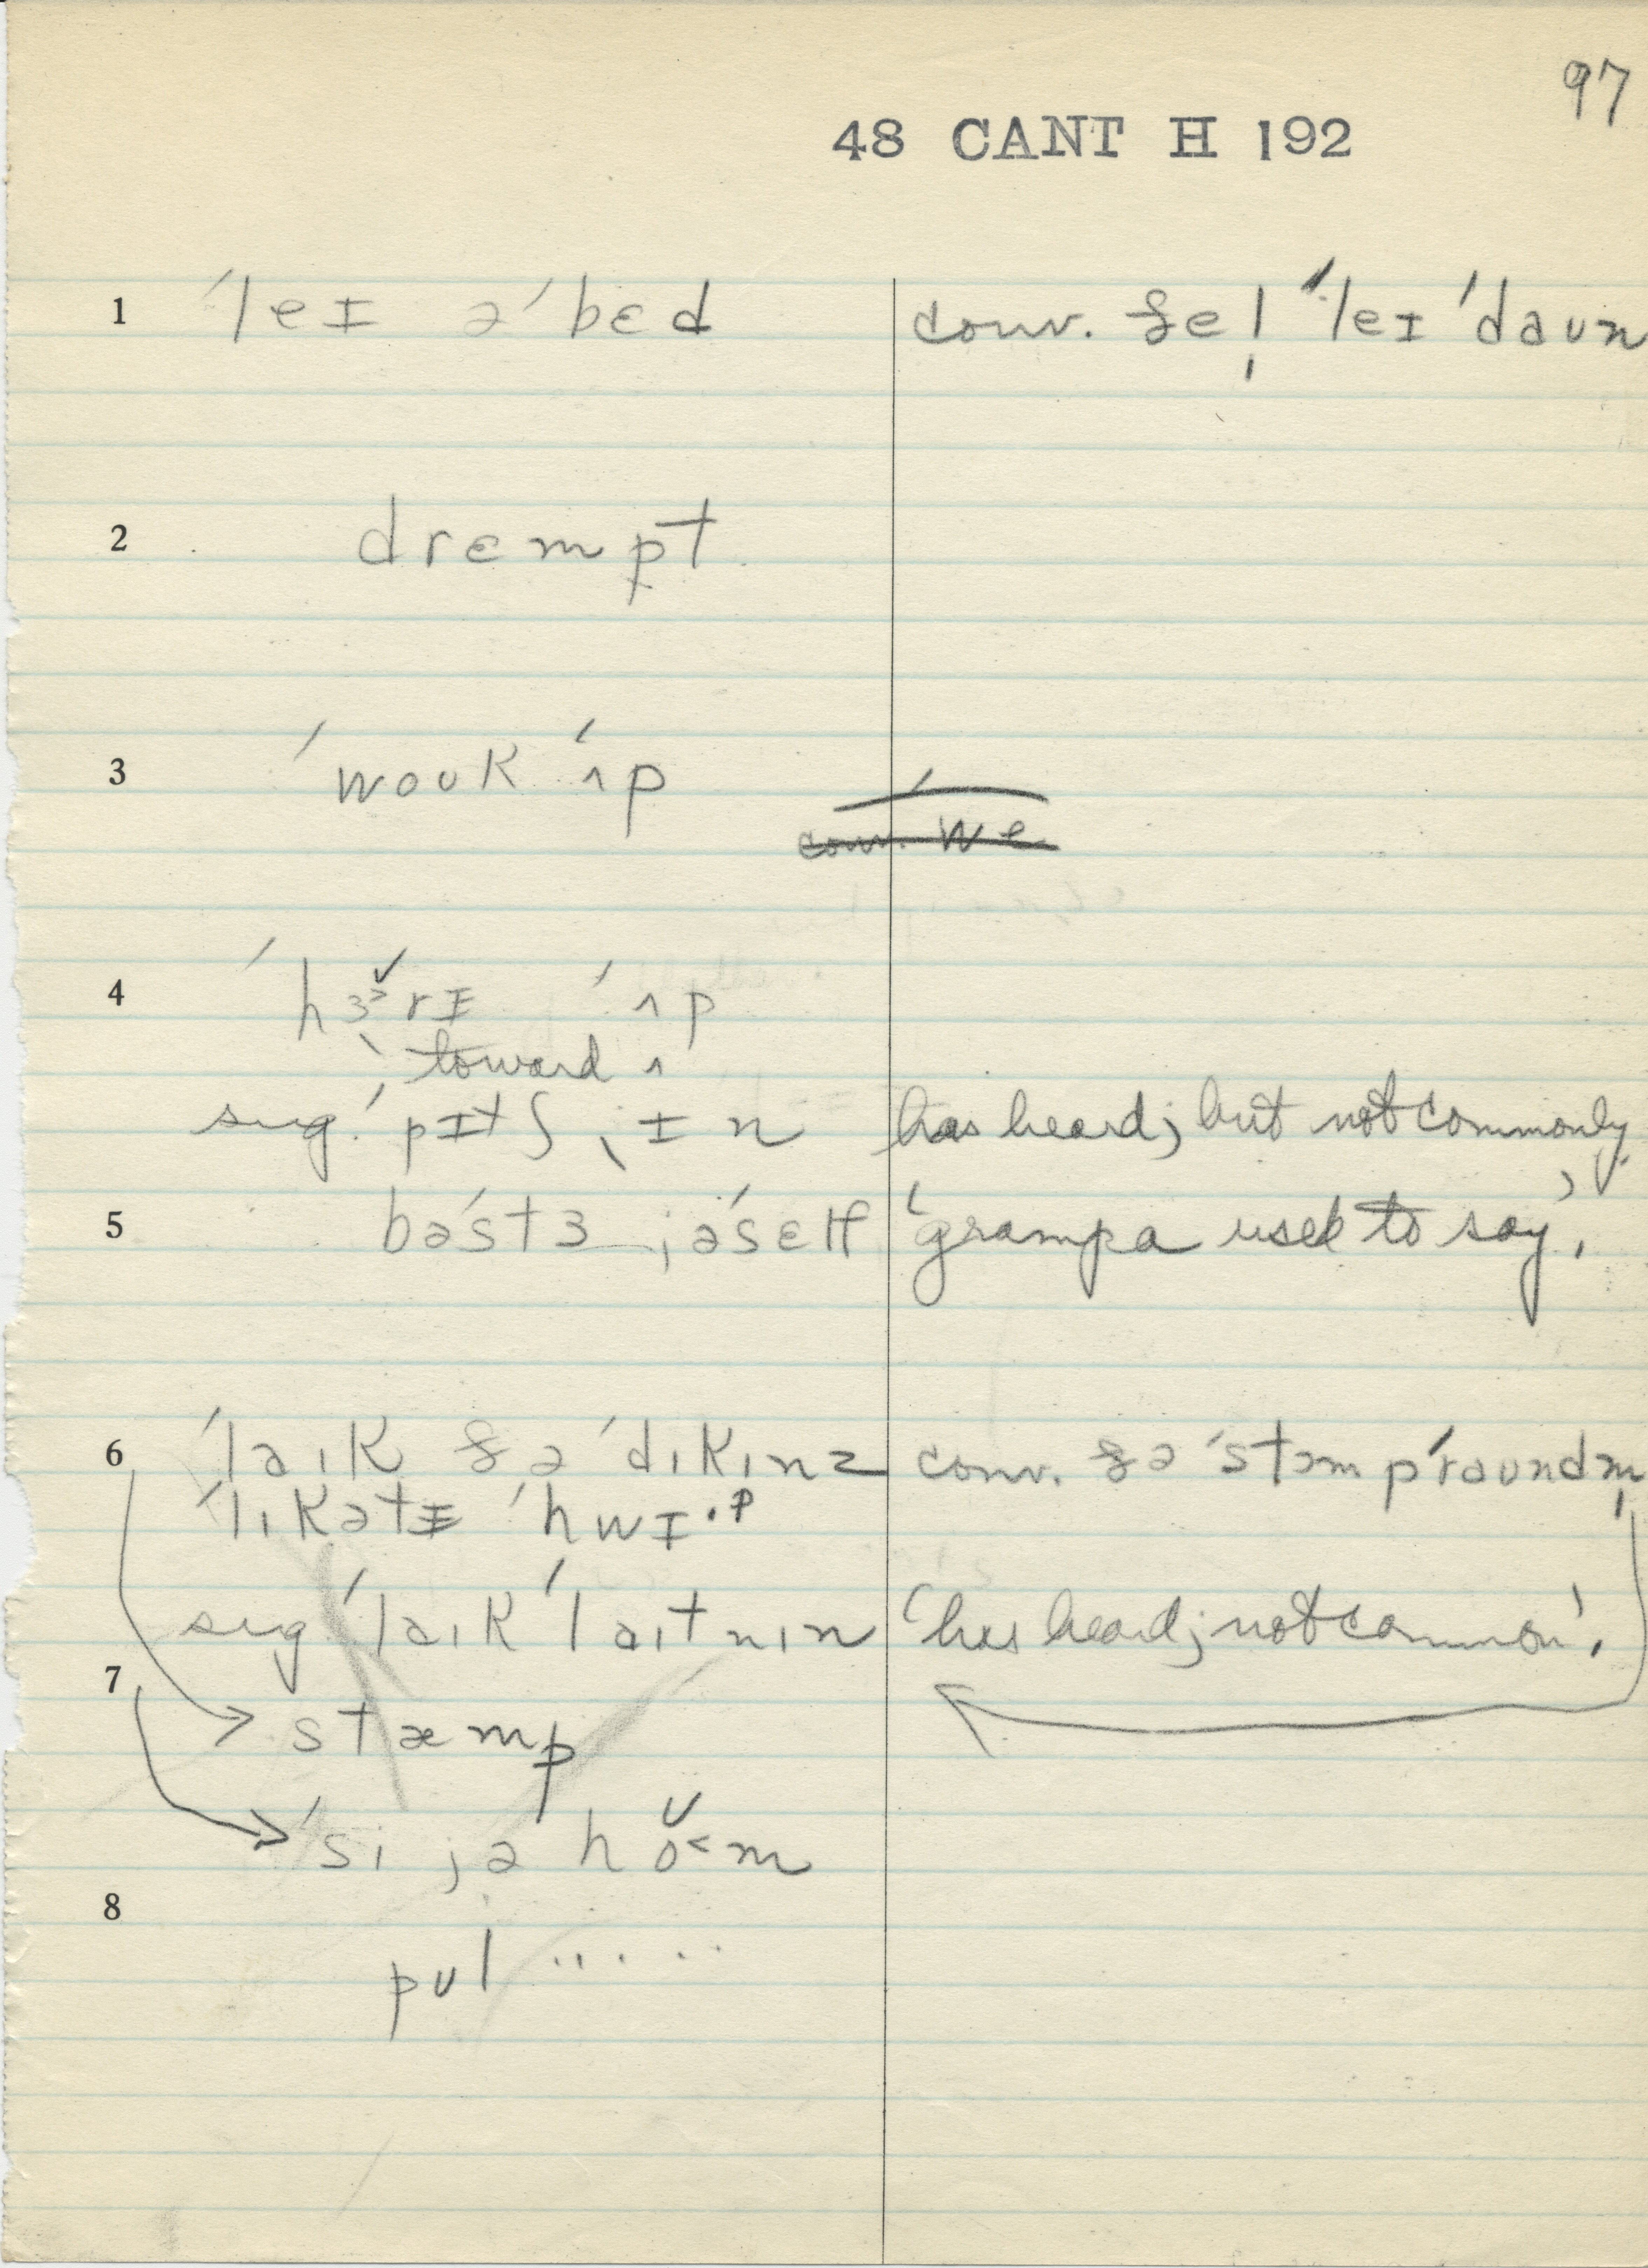 97
48 CANT H 192
1 ˈleɪ əˈbɛd conv. ðe! ˈleɪ ˈdaun
2 drɛmpt
3 ˈwouk ˈʌp
4 ˈhɜ˃rɪ ˈʌp
toward ʌ
sug. ˈpɪtʃ ˌɪn has heard; but not commonly
5 bəˈstɜ jəˈsɛlf 'grampa used to say'.
6 ˈlaik ðə ˈdikinz conv. ðə ˈstæmpˈraundm̩
ˈlikətɪ ˈhwɪ·p
sug. ˈlaik ˈlaitnin 'has heard; not common'.
7
stæmp
ˈsi jə hŏ˂m
8
pul .....